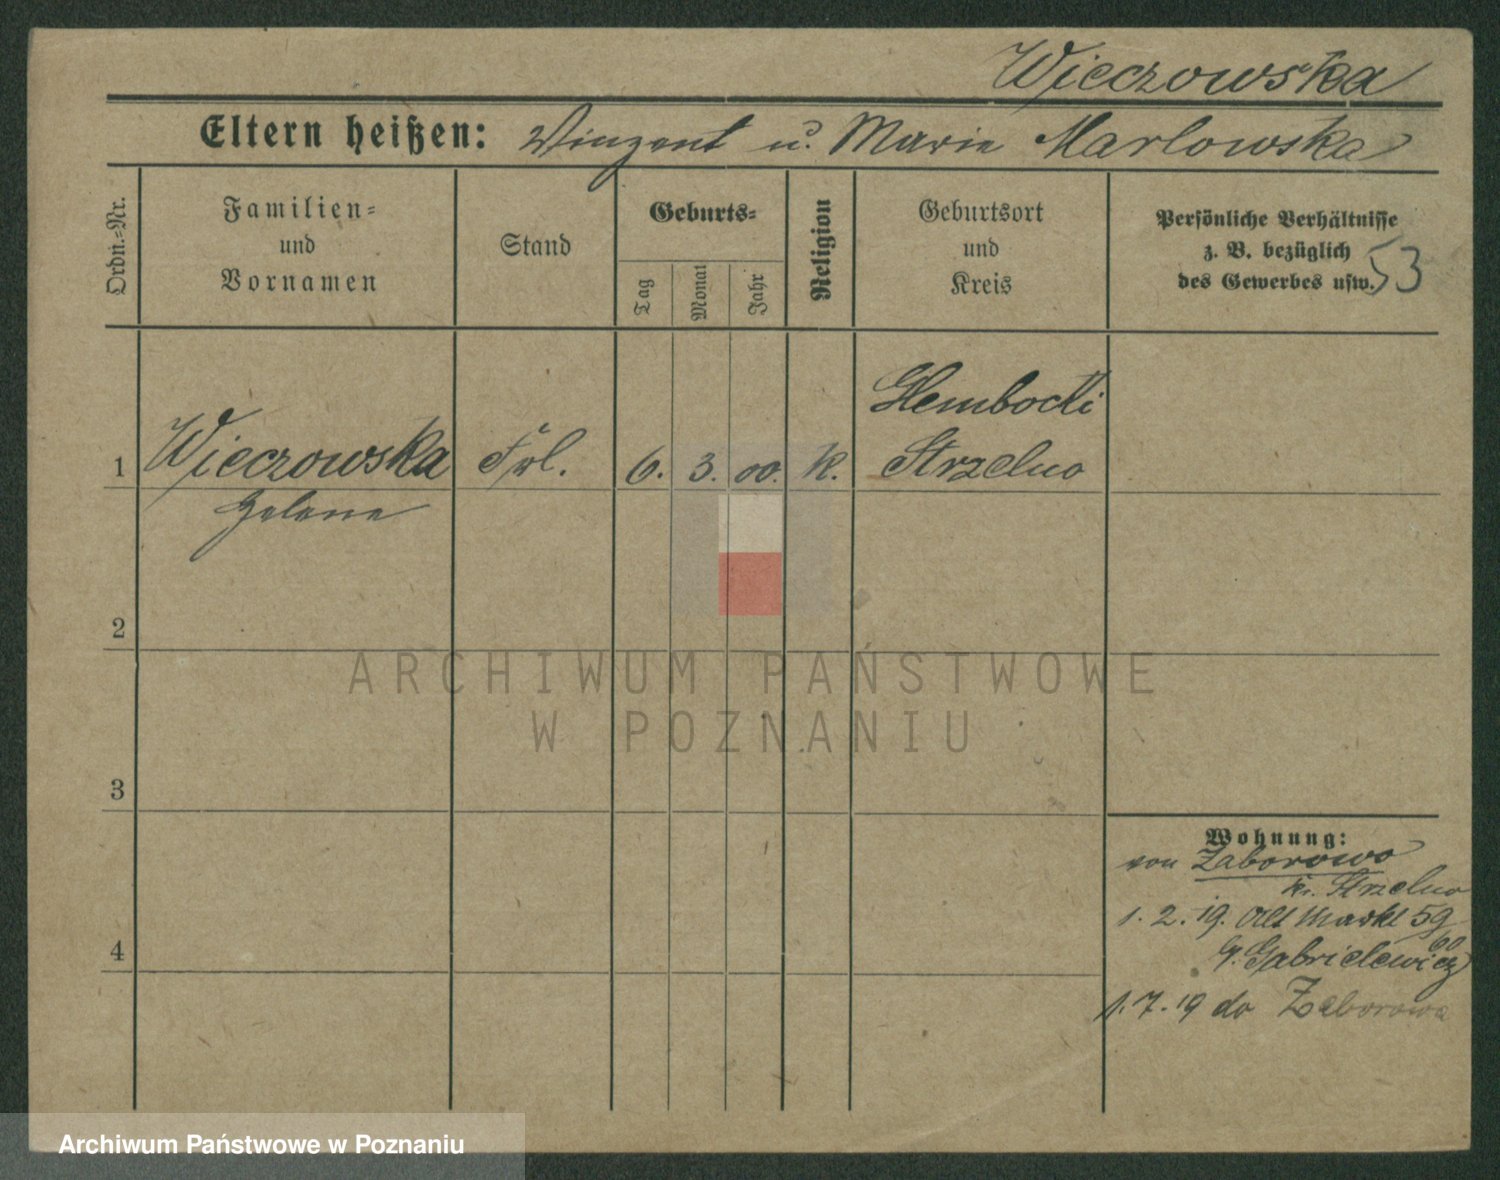 Wieczowska
Eltern heißen: Vinzent u. Marie Marlowska
Ordn.-Nr.
Familien-
und
Vornamen
Stand
Geburts-
Tag
Monat
Jahr
Religion
Geburtsort
und
Kreis
Persönliche Verhältnisse
z. B. bezüglich
des Gewerbes usw.
53
1
Wieczowska
Helene
Frl.
6. 3. 00.
K.
Glembocki
Strzelno
2
3
4
Wohnung:
von Zaborowo
Kr. Strzelno
1. 2. 19. Alt Markt 59
60
Gabrielewicz
1. 7. 19 do Zaborowa
ARCHIWUM PAŃSTWOWE
W POZNANIU
Archiwum Państwowe w Poznaniu